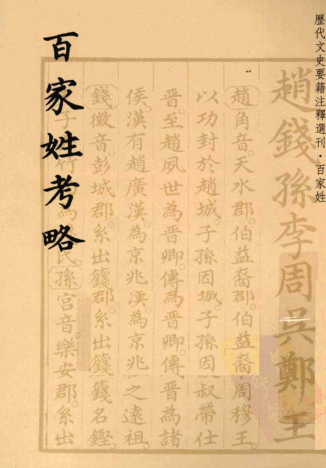 歷代文史要籍注釋選刊·百家姓
百家姓考略
趙錢孫李周吳鄭王
趙角音天水郡。伯益裔。伯益裔周穆王
以功封於趙城子孫因城。子孫因叔帶仕
晉。至趙夙世為晉卿。傳為晉卿。傳晉為諸
侯。漢有趙廣漢。為京兆漢。為京兆之遠祖。
錢徵音彭城郡。系出籛郡。系出籛籛名鏗
孫宮音。樂安郡。系出